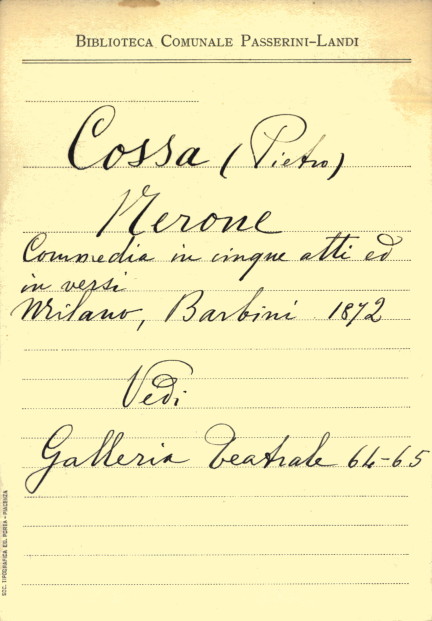 BIBLIOTECA COMUNALE PASSERINI-LANDI
Cossa (Pietro)
Nerone
Commedia in cinque atti ed
in versi
Milano, Barbini 1872
Vedi
Galleria teatrale 64-65
SOC. TIPOGRAFICA ED. PORTA - PIACENZA